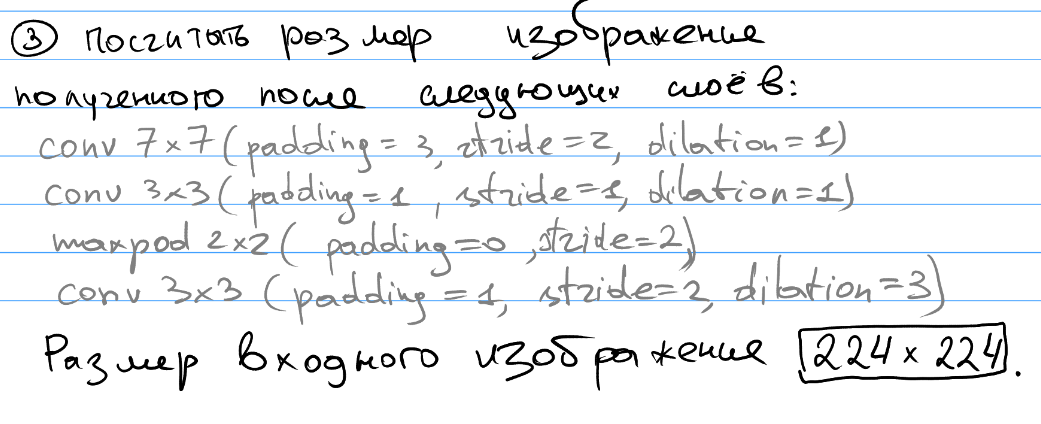 ③ Посчитать размер изображение
полученного после следующих слоёв:
conv 7×7 (padding = 3, stride=2, dilation=1)
conv 3×3 (padding=1, stride=1, dilation=1)
maxpool 2×2 ( padding=0, stride=2)
conv 3×3 (padding =1, stride=2, dilation=3)
Размер входного изображение 224 × 224.